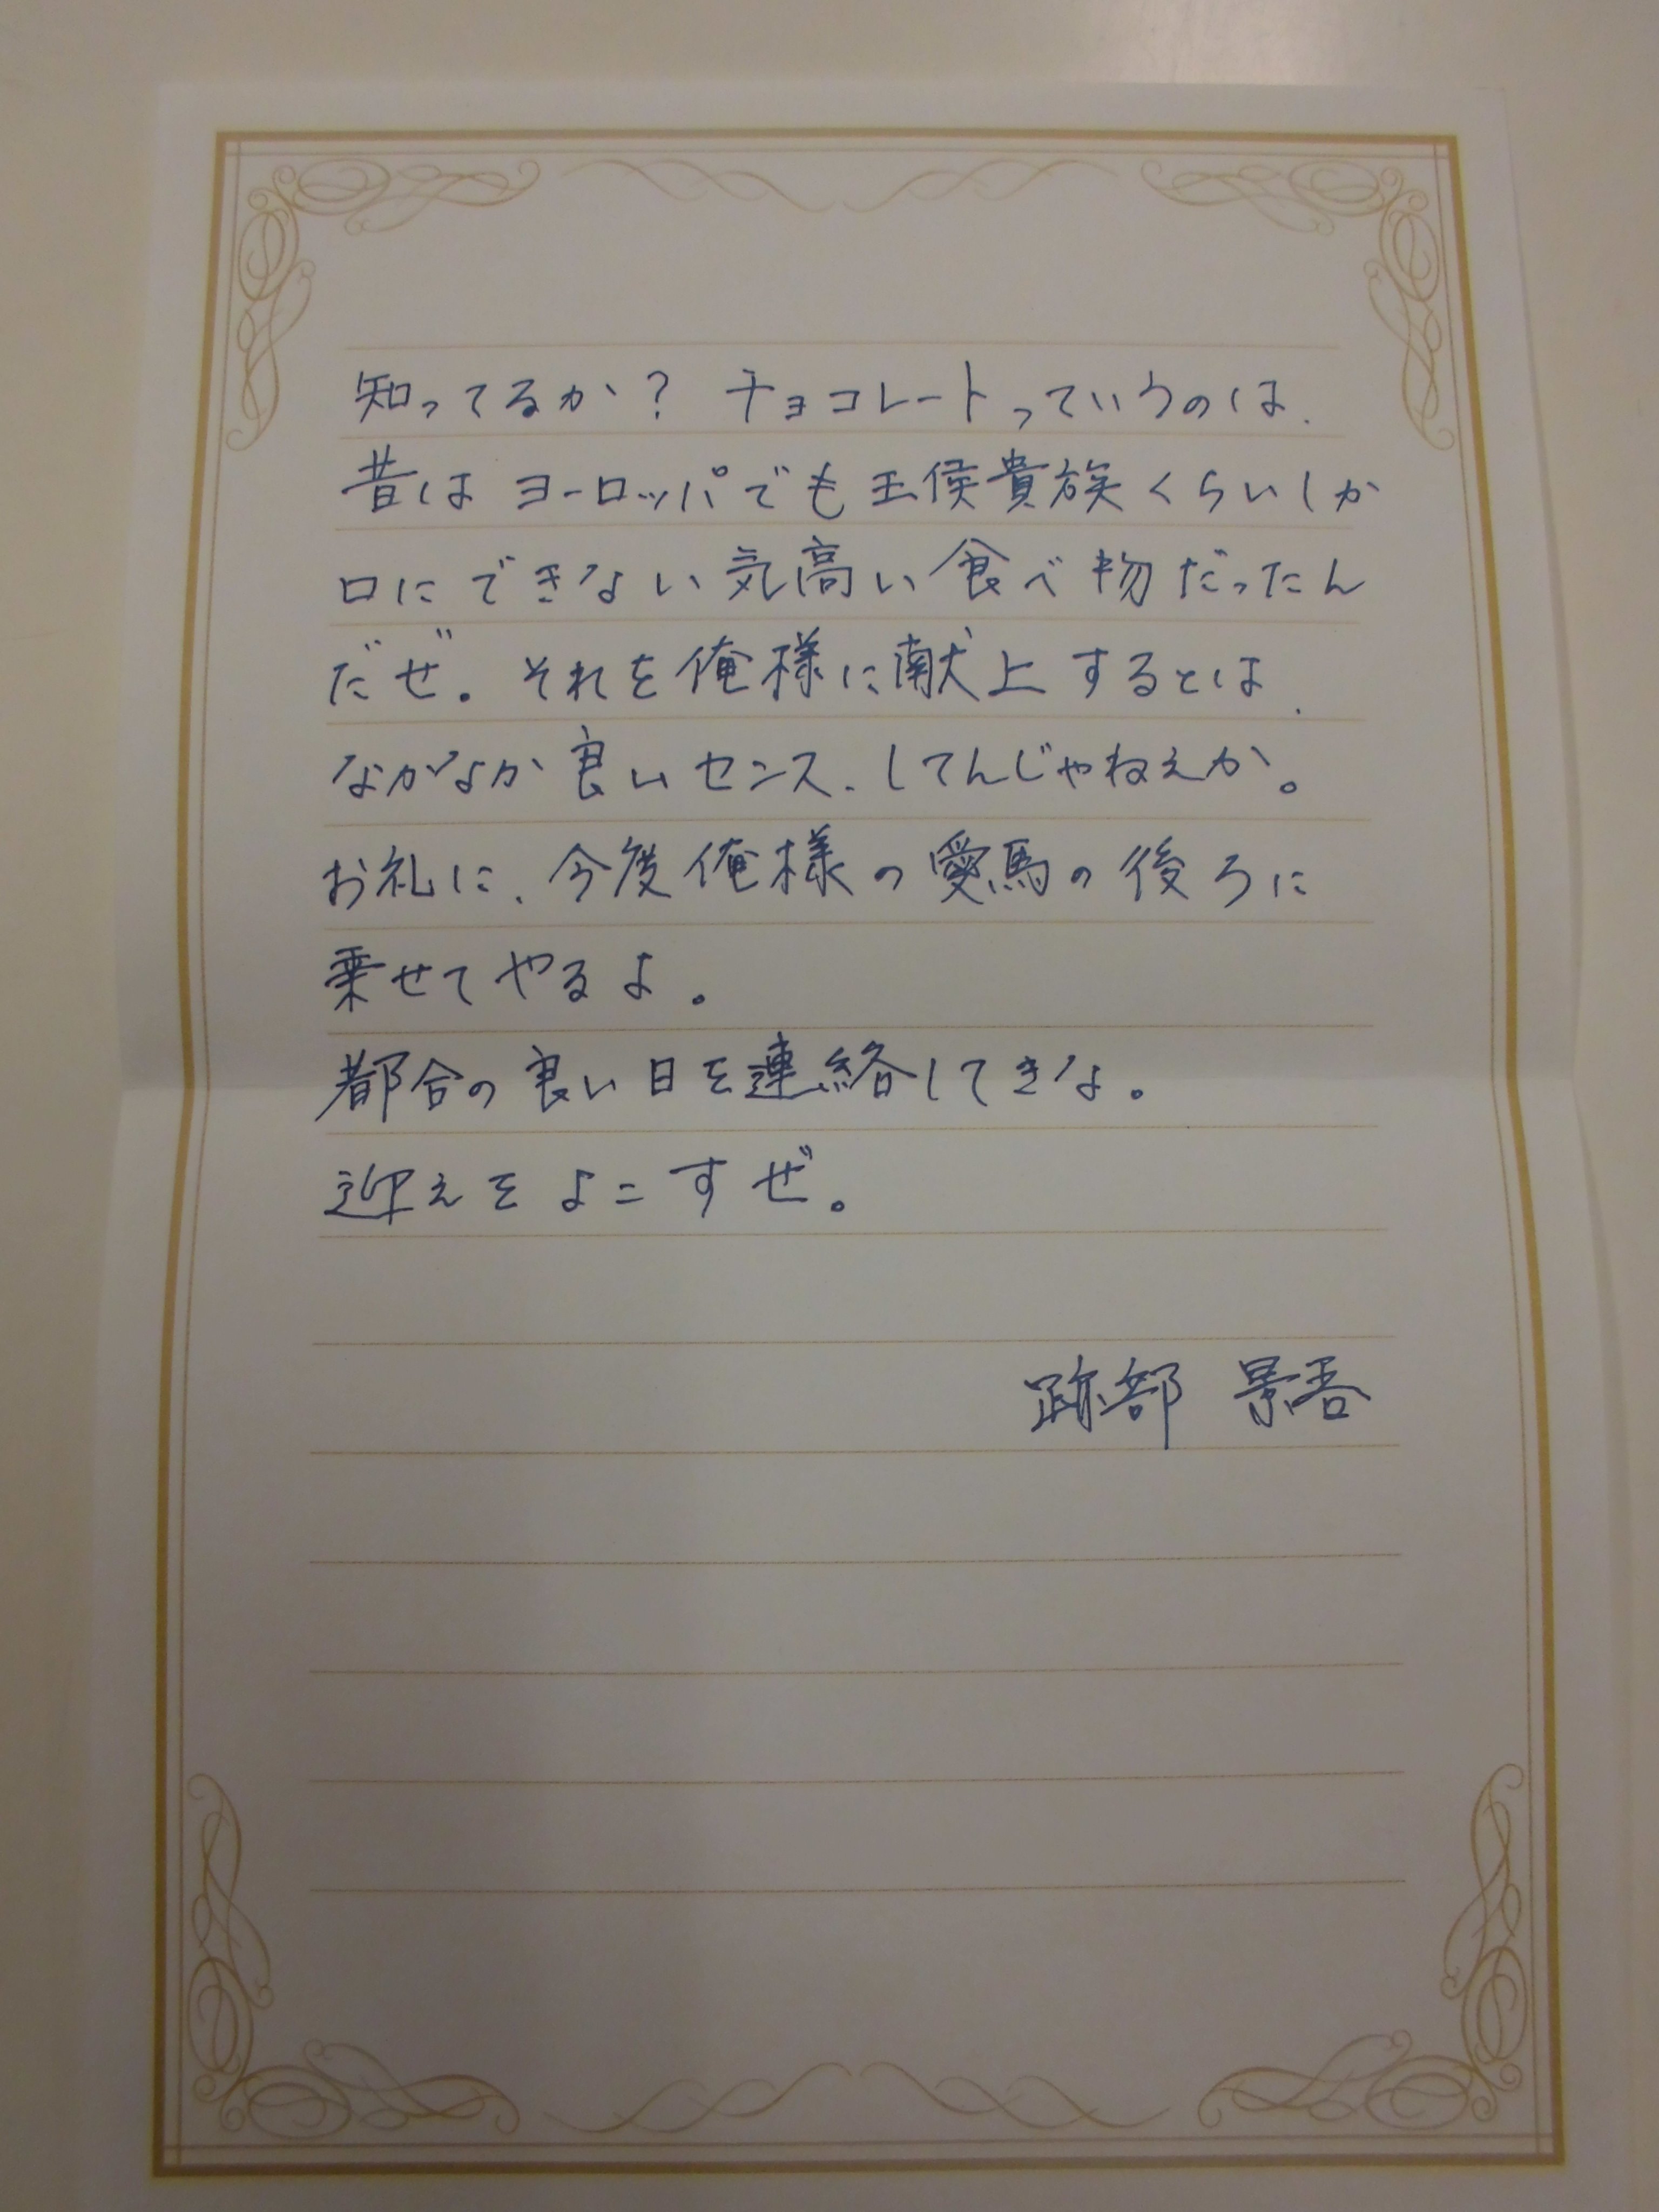 知ってるか？ チョコレートっていうのは、
昔はヨーロッパでも王侯貴族くらいしか
口にできない気高い食べ物だったん
だぜ。それを俺様に献上するとは、
なかなか良いセンス、してんじゃねえか。
お礼に、今度俺様の愛馬の後ろに
乗せてやるよ。
都合の良い日を連絡してきな。
迎えをよこすぜ。
跡部 景吾